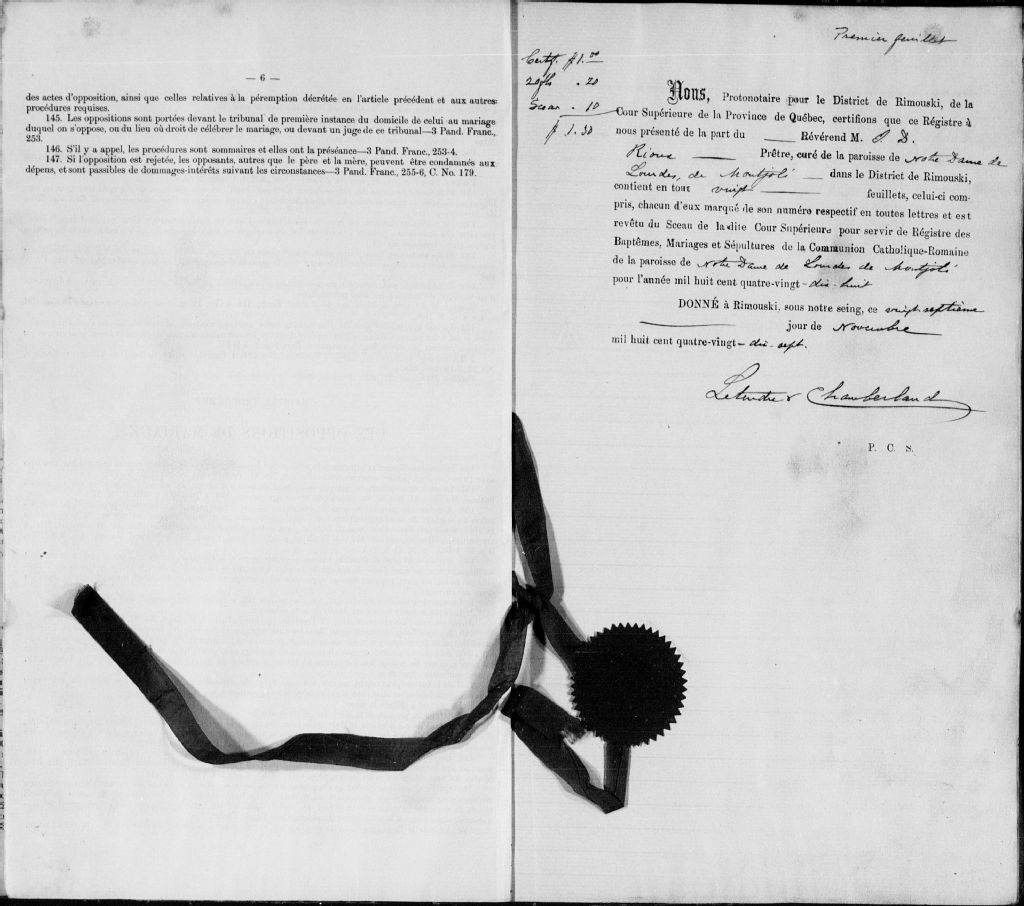 — 6 —
des actes d'opposition, ainsi que celles relatives à la péremption décrétée en l'article précédent et aux autres
procédures requises.
145. Les oppositions sont portées devant le tribunal de première instance du domicile de celui au mariage
duquel on s'oppose, ou du lieu où droit de célébrer le mariage, ou devant un juge de ce tribunal—3 Pand. Franc.,
253.
146. S'il y a appel, les procédures sont sommaires et elles ont la préséance—3 Pand. Franc., 253-4.
147. Si l'opposition est rejetée, les opposants, autres que le père et la mère, peuvent être condamnés aux
dépens, et sont passibles de dommages-intérêts suivant les circonstances—3 Pand. Franc., 255-6, C. No. 179.
Premier feuillet
Certif. $1.00
20 fls .20
Sceau .10
$1.30
Nous, Protonotaire pour le District de Rimouski, de la
Cour Supérieure de la Province de Québec, certifions que ce Régistre à
nous présenté de la part du Révérend M. J. D.
Rioux Prêtre, curé de la paroisse de Notre Dame de
Lourdes, de Montjoli dans le District de Rimouski,
contient en tout vingt feuillets, celui-ci com-
pris, chacun d'eux marqué de son numéro respectif en toutes lettres et est
revêtu du Sceau de la dite Cour Supérieure pour servir de Régistre des
Baptêmes, Mariages et Sépultures de la Communion Catholique-Romaine
de la paroisse de Notre Dame de Lourdes de Montjoli
pour l'année mil huit cent quatre-vingt-dix-huit
DONNÉ à Rimouski, sous notre seing, ce vingt-septième
jour de Novembre
mil huit cent quatre-vingt-dix-sept.
Letendre & Chamberland
P. C. S.